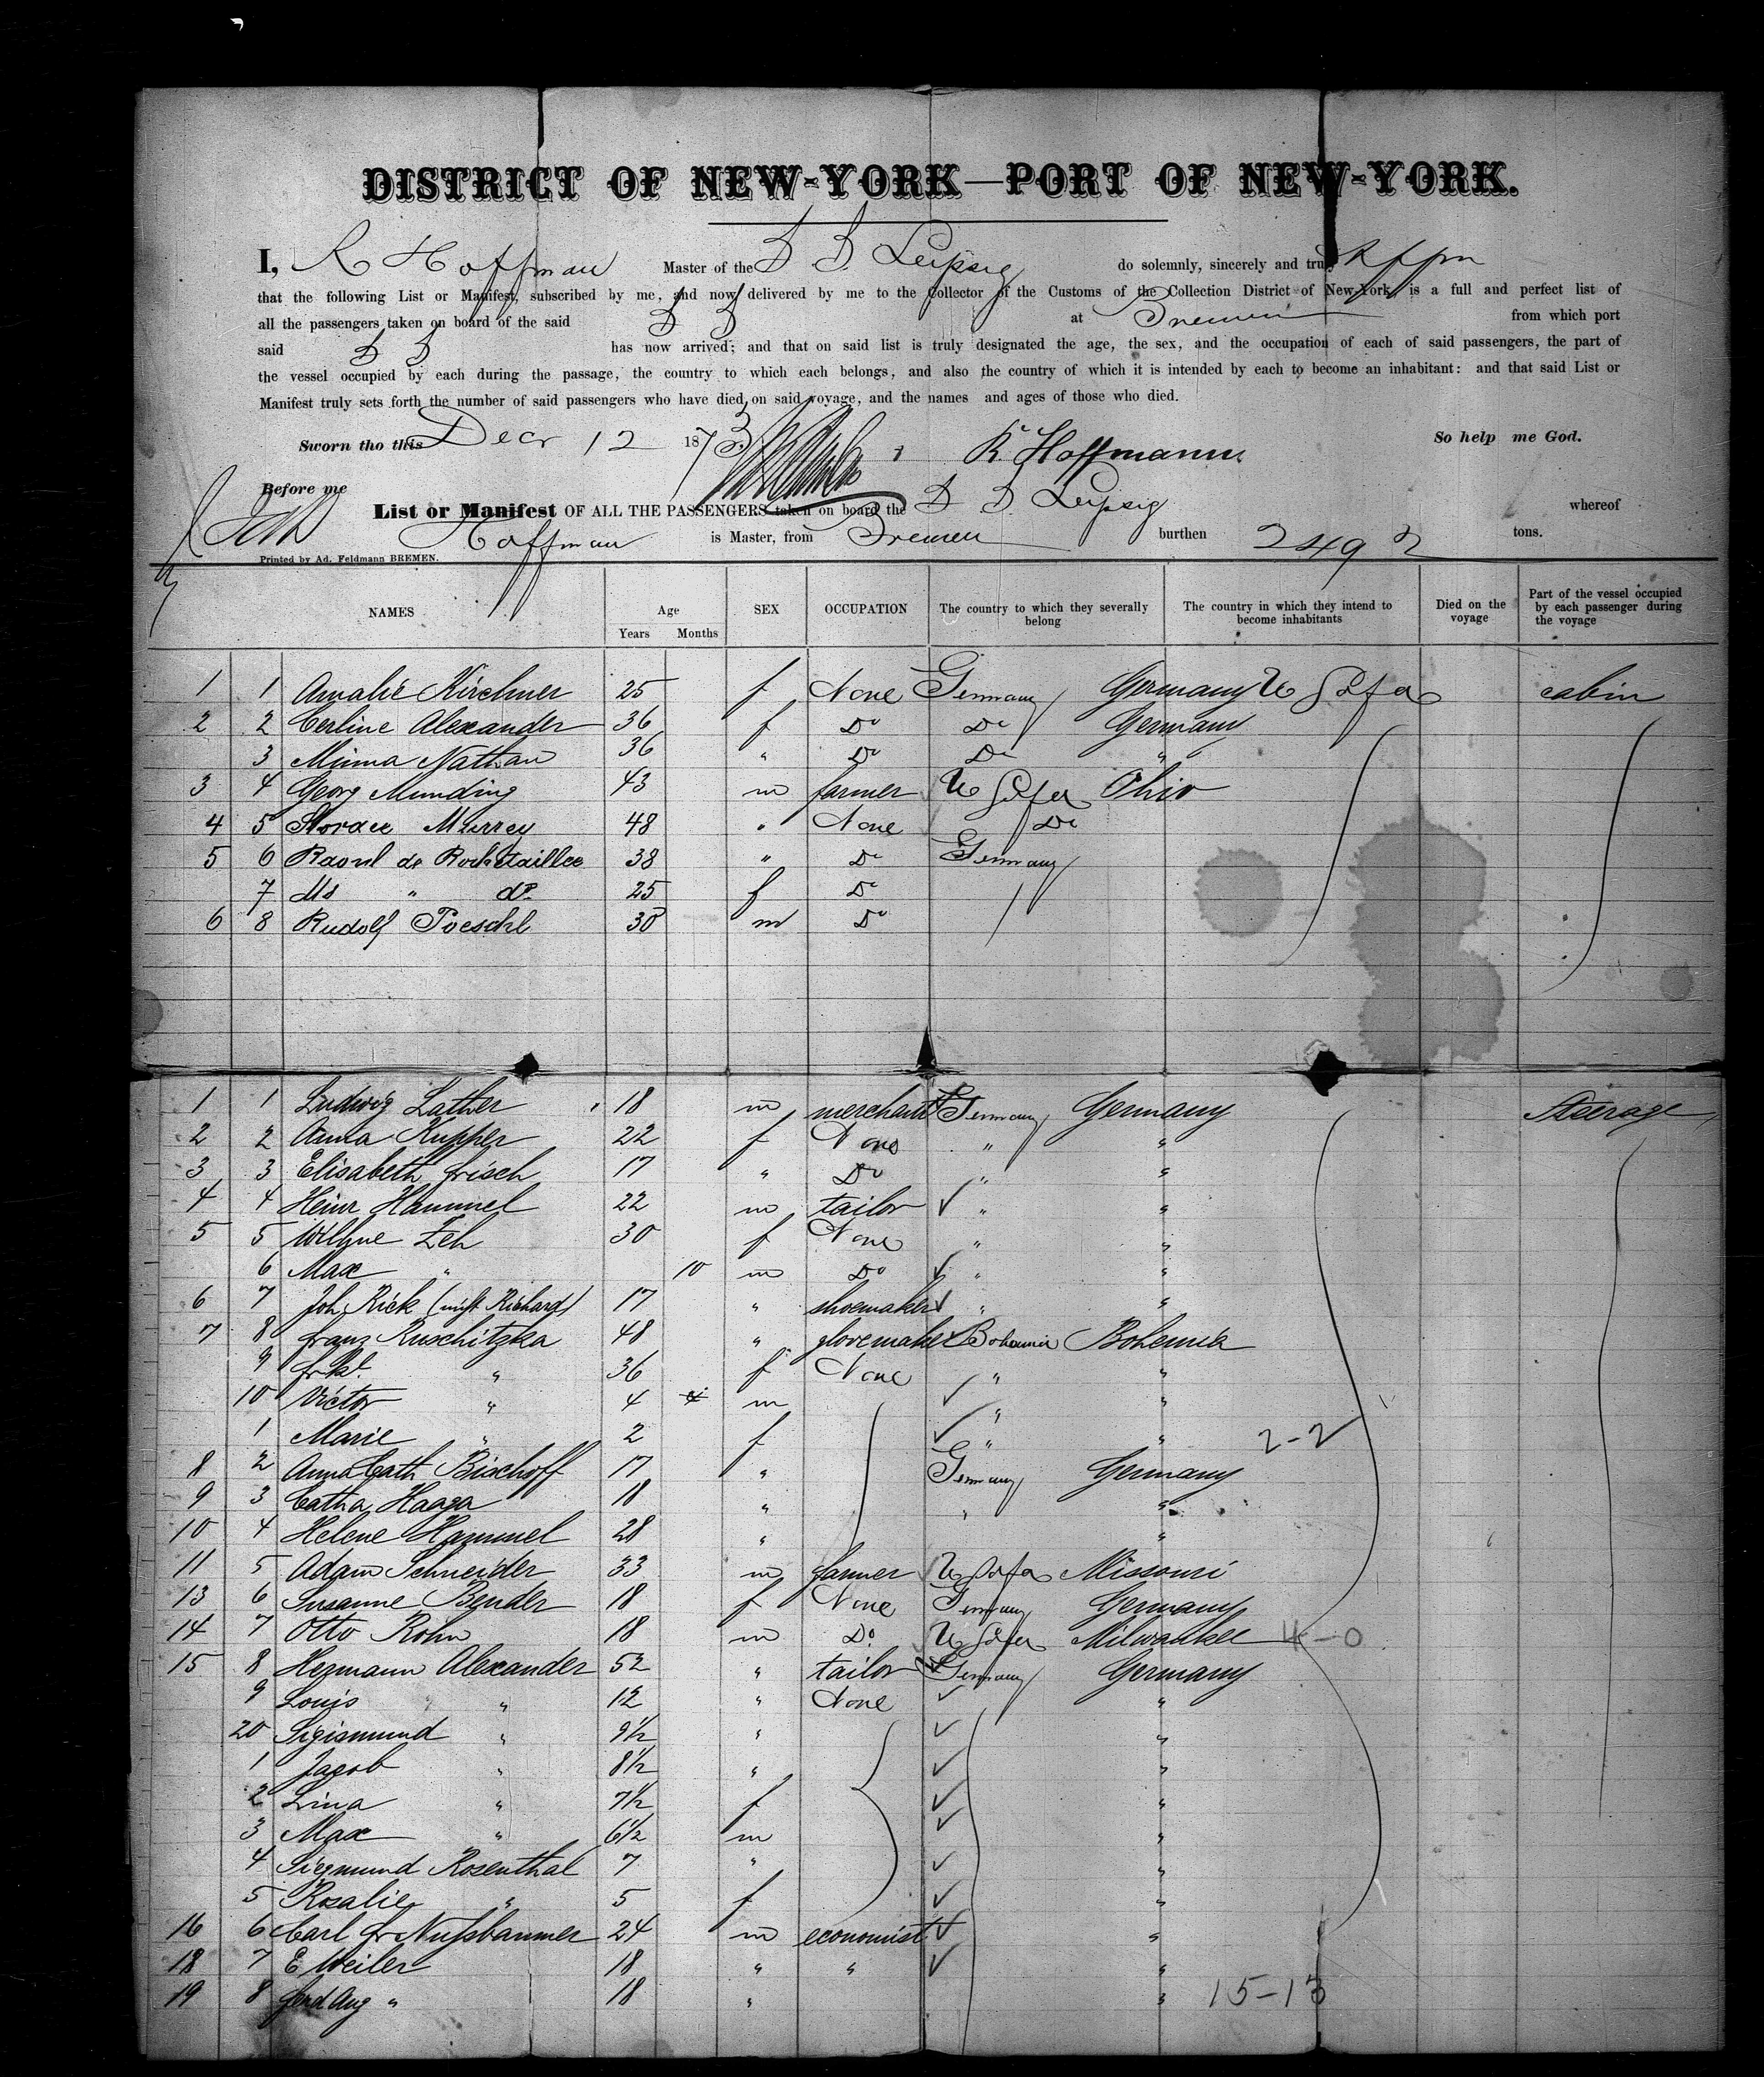 DISTRICT OF NEW-YORK—PORT OF NEW-YORK.
I, R Hoffman Master of the S S. Leipzig do solemnly, sincerely and truly
that the following List or Manifest, subscribed by me, and now delivered by me to the Collector of the Customs of the Collection District of New-York, is a full and perfect list of
all the passengers taken on board of the said S S at Bremen from which port
said S S has now arrived; and that on said list is truly designated the age, the sex, and the occupation of each of said passengers, the part of
the vessel occupied by each during the passage, the country to which each belongs, and also the country of which it is intended by each to become an inhabitant: and that said List or
Manifest truly sets forth the number of said passengers who have died on said voyage, and the names and ages of those who died.
Sworn tho this Decr 12 1873. R. Hoffmann So help me God.
Before me
List or Manifest OF ALL THE PASSENGERS taken on board the S S. Leipzig whereof
Hoffman is Master, from Bremen burthen 2492 tons.
Printed by Ad. Feldmann BREMEN.
NAMES Age Years Months SEX OCCUPATION The country to which they severally belong The country in which they intend to become inhabitants Died on the voyage Part of the vessel occupied by each passenger during the voyage
1 1 Amalie Kirchner 25 f None Germany Germany U S of a cabin
2 2 Cerline Alexander 36 f Do Do Germany
3 Minna Nathan 36 " Do Do "
3 4 Georg Munding 43 m farmer U S of a Ohio
4 5 Horace Murrey 48 " None Do
5 6 Raoul de Rochetaillee 38 " Do Germany
7 Ms " do 25 f Do
6 8 Rudolf Poeschl 30 m Do
1 1 Ludwig Lather 18 m merchant Germany Germany Steerage
2 2 Anna Kupper 22 f None " "
3 3 Elisabeth Frisch 17 " Do " "
4 4 Heinr Hammel 22 m tailor " "
5 5 Wilhne Zeh 30 f None " "
6 Max " 10 m Do " "
6 7 Joh. Rick (nicht Richard) 17 " shoemaker " "
7 8 Franz Ruschitzka 48 " glovemaker Bohemia Bohemia
9 " 36 f None " "
10 Victor " 4 4 m " "
1 Marie " 2 f " " 2-2
8 2 Anna Cath Bischoff 17 " Germany Germany
9 3 Catha Haaga 18 " " "
10 4 Helene Hammel 28 " "
11 5 Adam Schneider 33 m farmer U S of a Missouri
13 6 Susanne Bender 18 f None Germany Germany
14 7 Otto Rohn 18 m Do. U S of a Milwaukee 4-0
15 8 Hermann Alexander 52 " tailor Germany Germany
9 Louis " 12 " None "
20 Sigismund " 9½ " "
1 Jacob " 8½ " "
2 Lina " 7½ f "
3 Max " 6½ m "
4 Siegmund Rosenthal 7 " "
5 Rosalie " 5 f "
16 6 Carl Fr Nußbaumer 24 m economist "
18 7 E Weiler 18 " " "
19 8 Ferd Aug " 18 " " 15-13